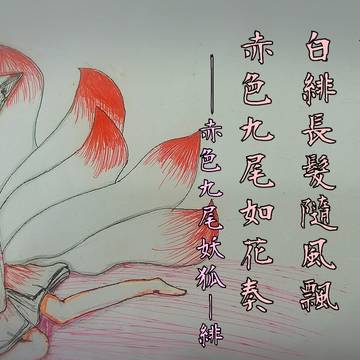 白緋長髮隨風飄
赤色九尾如花奏
——赤色九尾妖狐—緋